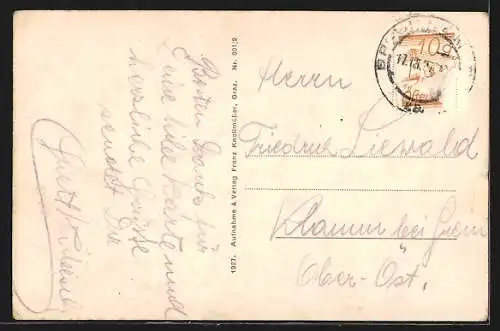 Besten Dank für
Deine liebe Karte und
herzliche Grüsse
sendet Dir
1927. Aufnahme & Verlag Franz Knollmüller, Graz. Nr. 001/2
Herrn
Friedrich Liewald
Klamm bei Grein
Ober-Ost.
10g